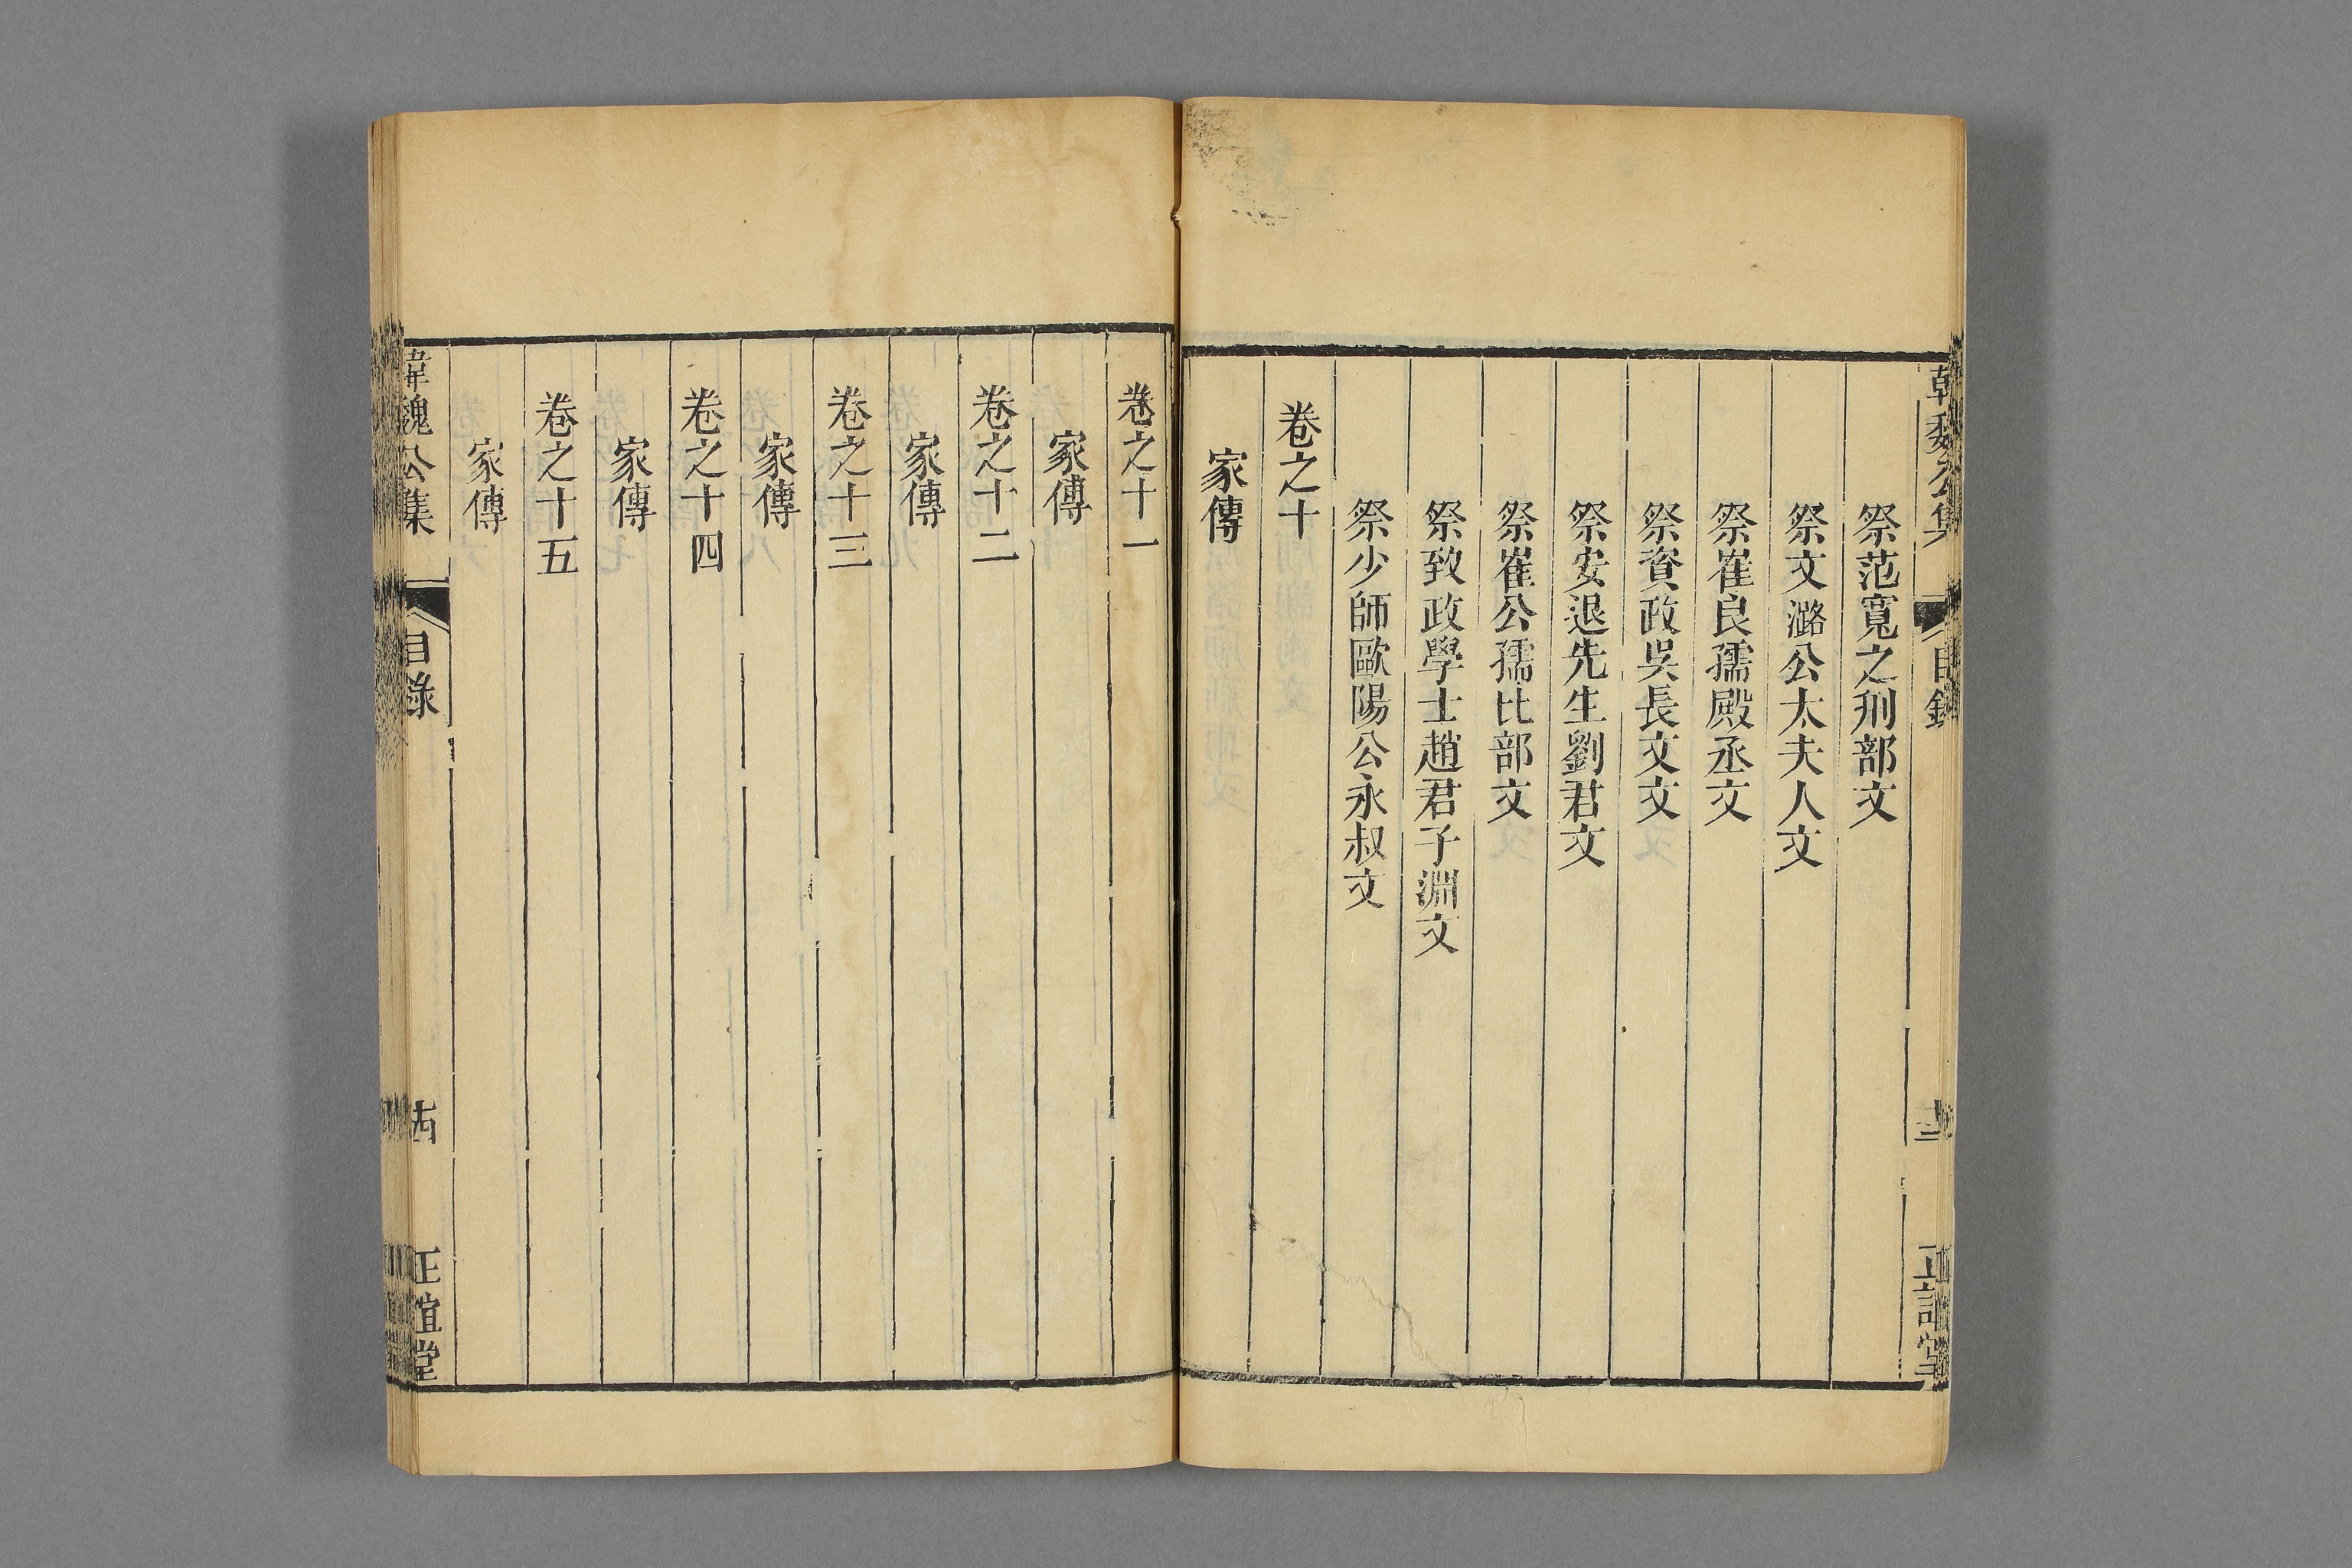 韓魏公集 目錄 十三 正誼堂
祭范寬之刑部文
祭文潞公太夫人文
祭崔良孺殿丞文
祭資政吳長文文
祭安退先生劉君文
祭崔公孺比部文
祭致政學士趙君子淵文
祭少師歐陽公永叔文
卷之十
家傳
卷之十一
家傳
卷之十二
家傳
卷之十三
家傳
卷之十四
家傳
卷之十五
家傳
韓魏公集 目錄 十四 正誼堂